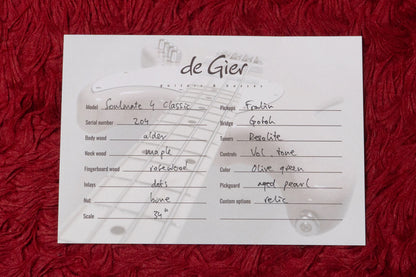 de Gier
guitars & basses
Model Soulmate 4 Classic
Serial number 204
Body wood alder
Neck wood maple
Fingerboard wood rosewood
Inlays dots
Nut bone
Scale 34"
Pickups Fralin
Bridge Gotoh
Tuners Resolite
Controls Vol, tone
Color Olive green
Pickguard aged pearl
Custom options relic